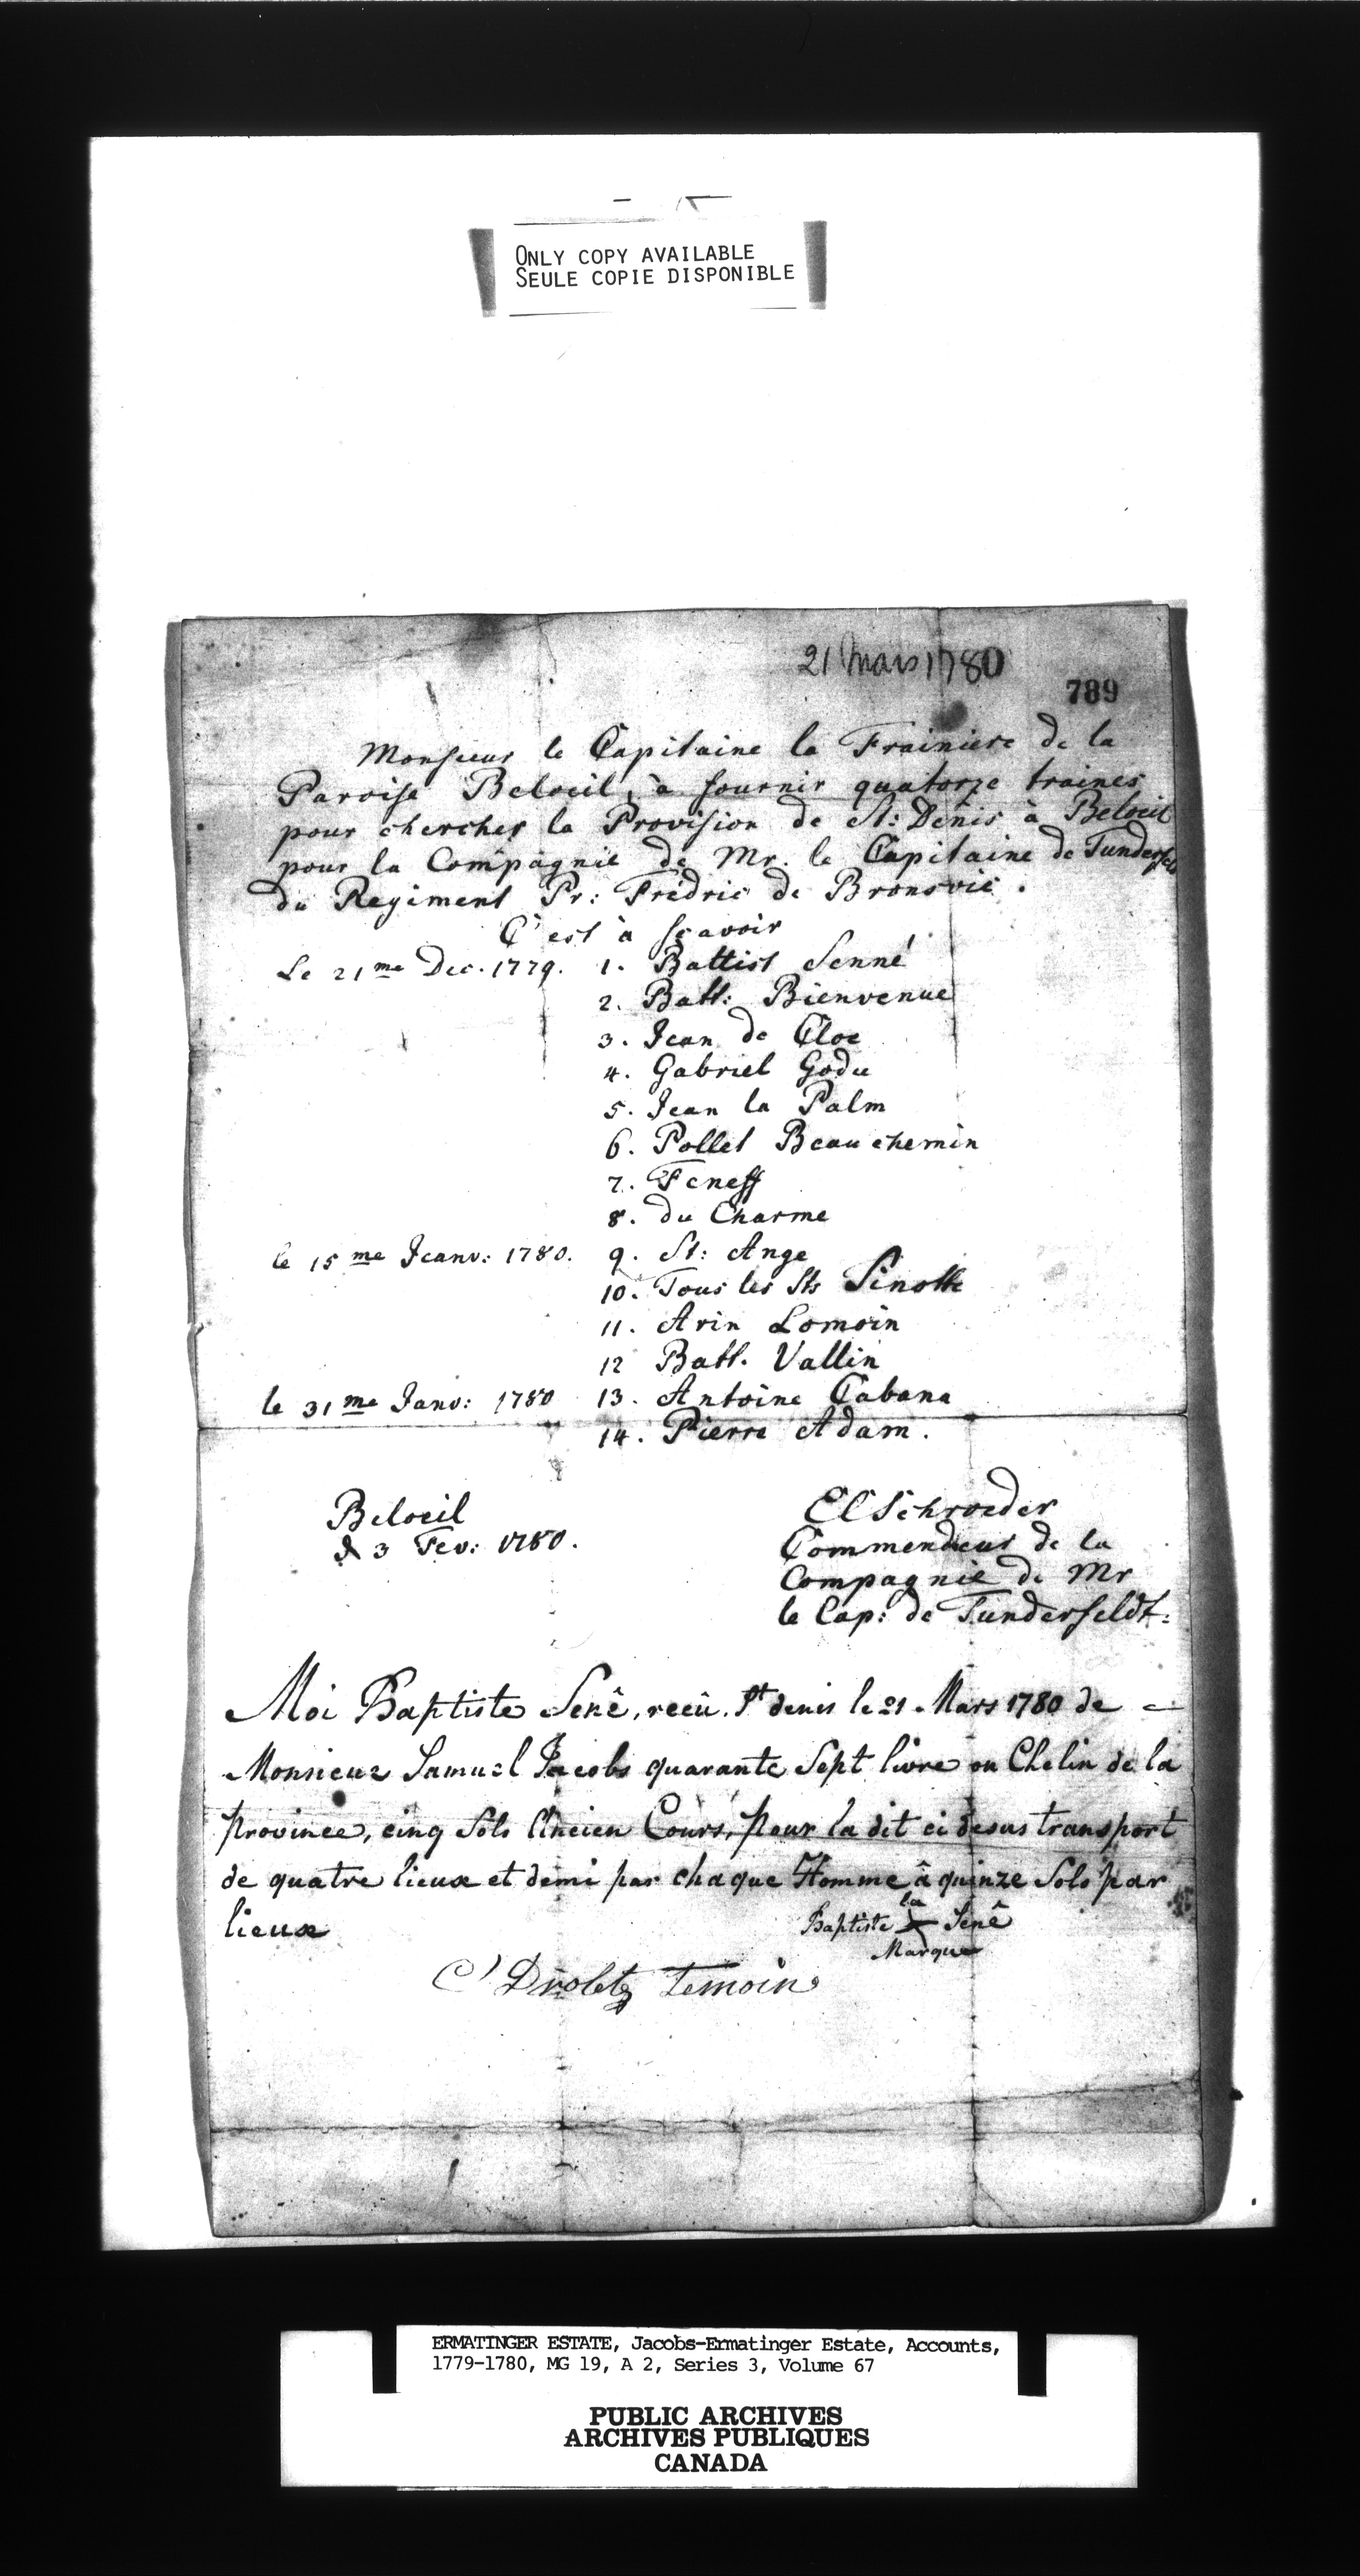 ONLY COPY AVAILABLE
SEULE COPIE DISPONIBLE
21 Mars 1780
789
Monsieur le Capitaine la Frainiere de la
Paroise Beloeil, à fournir quatorze traines
pour chercher la Provision de St: Denis à Beloeil
pour la Compagnie de Mr. le Capitaine de Tunderfeld
du Regiment Pr: Fredric de Bronsvic.
C'est à scavoir
Le 21me Dec. 1779. 1. Battist Senné
2. Batt: Bienvenue
3. Jean de Cloe
4. Gabriel Godu
5. Jean la Palm
6. Pollet Beauchemin
7. Feneff
8. du Charme
le 15me Jeanv: 1780. 9. St: Ange
10. Tous les Sts Pinotte
11. Arin Lomoin
12 Batt. Vallin
le 31me Janv: 1780 13. Antoine Cabana
14. Pierre Adam.
Beloeil
3 Fev: 1780.
ECSchroeder
Commendeur de la
Compagnie de Mr
le Cap: de Tunderfeldt:
Moi Baptiste Senê, recû. St denis le 21 Mars 1780 de
Monsieur Samuel Jacobs quarante Sept livre ou Chelin de la
province, cinq Sols Ancien Cours, pour la dit ci desus transport
de quatre lieux et demi par chaque Homme â quinze Sols par
lieux
la
Baptiste X Senê
Marque
C Drolet temoin
ERMATINGER ESTATE, Jacobs-Ermatinger Estate, Accounts,
1779-1780, MG 19, A 2, Series 3, Volume 67
PUBLIC ARCHIVES
ARCHIVES PUBLIQUES
CANADA